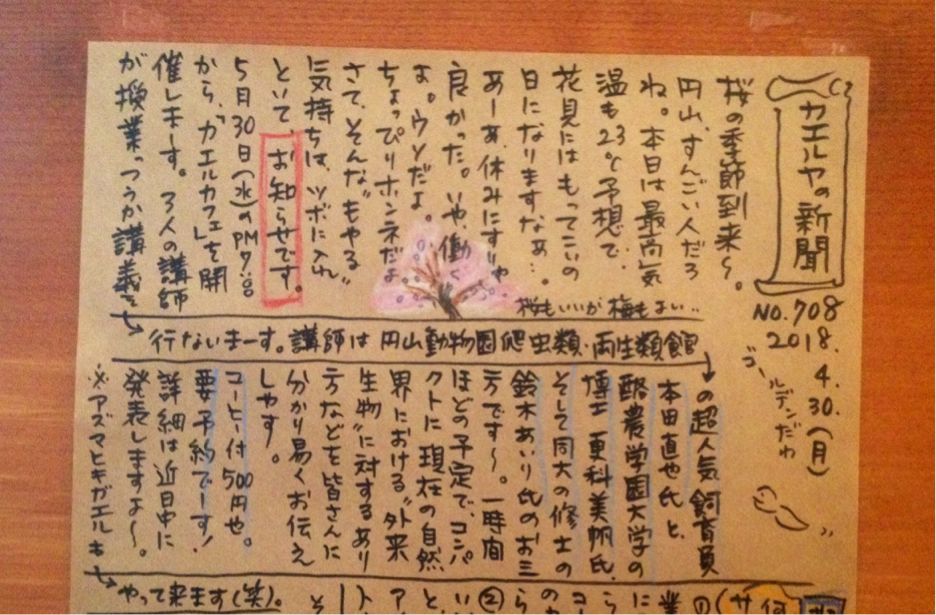 カエルヤの新聞
NO.708
2018.4.30.(月)
ゴールデンだわ
桜の季節到来〜。
円山、すんごい人だろ
ね。本日は最高気
温も23℃予想で、
花見にはもってこいの
日になりますなぁ…
あーあ、休みにすりゃ
良かった。いや、働く
よ。ウソだよ。
ちょっぴりホンネだよ
さて、そんな“もやる”
気持ちは、ツボに入れ
といて、お知らせです。
5月30日(水)のPM7:00
から、「カエルカフェ」を開
催しまーす。3人の講師
が授業っつうか講義を
桜もいいが梅もよい…
行ないまーす。講師は円山動物園爬虫類・両生類館
の超人気飼育員
本田直也氏と、
酪農学園大学の
博士 更科美帆氏、
そして同大の修士の
鈴木あいり氏のお三
方です〜。一時間
ほどの予定で、コンパ
クトに現在の自然
界における“外来
生物”に対するあり
方などを皆さんに
分かり易くお伝え
しやす。
コーヒー付500円や。
要予約でーす!
詳細は近日中に
発表しますよ〜。
※アズマヒキガエルも
やって来ます(笑)。